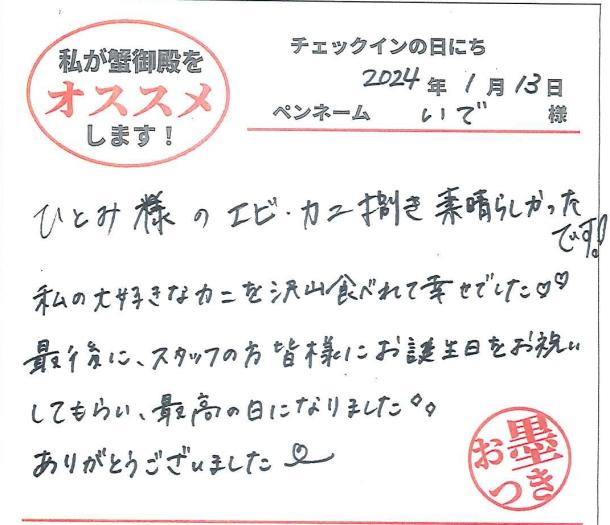 私が蟹御殿を
オススメ
します！
チェックインの日にち
2024年1月13日
ペンネーム いで 様
ひとみ様のエビ・カニ捌き素晴らしかった
です!!
私の大好きなカニを沢山食べれて幸せでした♡♡
最後に、スタッフの方皆様にお誕生日をお祝い
してもらい、最高の日になりました
ありがとうございました
お墨
つき